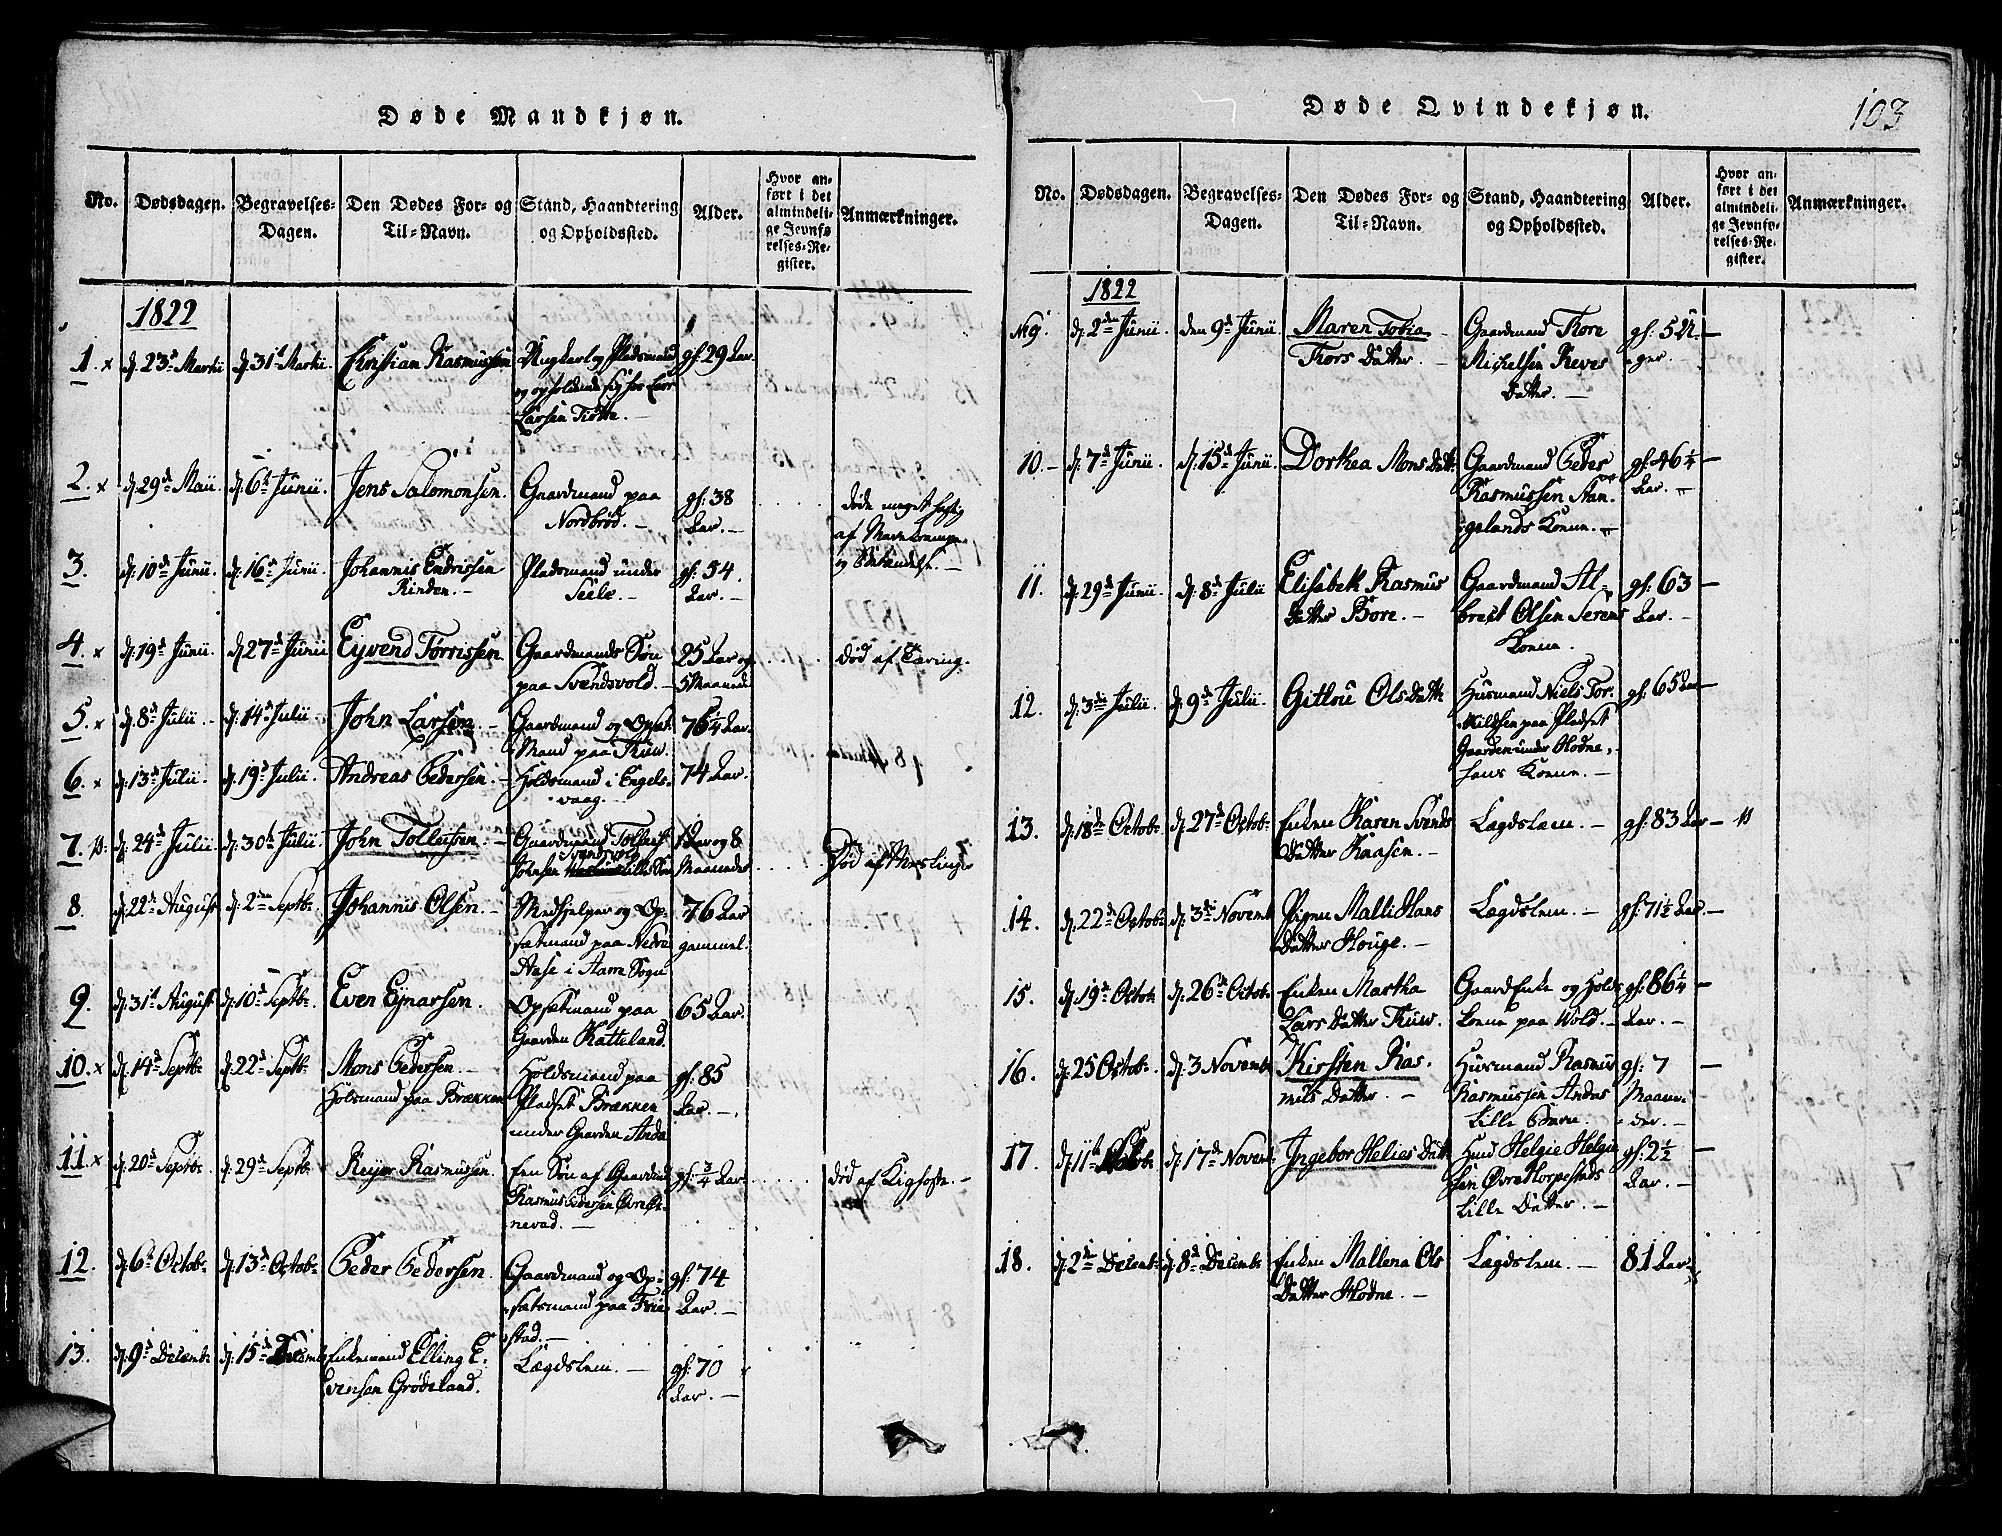 Døde Mandkjøn.
No.
Dødsdagen.
Begravelses-
Dagen.
Den Dødes For- og
Til-Navn.
Stand, Haandtering
og Opholdssted.
Alder.
Hvor an-
ført i det
almindeli-
ge Jevnfø
relses-Re-
gister.
Anmærkninger.
1822
1. x
d. 23de Martii
d. 31te Martii.
Christian Rasmussen
Ungkarl og Pladsmand
og opholdende sig hos Lars
Larsen
gl. 29 Aar.
2. x
d. 29de Maii
d. 6te Junii.
Jens Salomonsen.
Gaardmand paa
Nordbrød. –
gl. 38
Aar. –
døde meget hastig
af Mavekrampe
3.
d. 10de Junii.
d. 16de Junii.
Johannis Endrissen
Rinden. –
Pladsmand under
Seele. –
gl. 54.
Aar. –
4. x
d. 19de Junii.
d. 27de Junii
Eyvend Tørrissen
Gaardmands Søn
paa Svendsvold. –
25 Aar og
5 Maaneder
død af Tæring.
5. x
d. 8de Julii. –
d. 14de Julii.
John Larsen. –
Gaardmand og Opsæt-
Mand paa Tuw.
76 1/4 Aar.
6. x
d. 13de Julii.
d. 19de Julii.
Andreas Pedersen. –
Holdsmand i Engels-
vaag.
74 Aar.
7.
d. 24de Julii
d. 30te Julii.
John Tolleifsen. –
Gaardmand Tolleif
Johnsen Lille Søn
1 Aar og 8
Maaneder
Død af Meslinger
8.
d. 22de August
d. 2den Septbr.
Johannis Olsen. –
Medhjelper og Op-
sætmand paa Nedre
Aase i Aarre Sogn
76 Aar
gammel.
9.
d. 31te August
d. 10de Septbr.
Even Eynarsen.
Opsætmand paa
Gaarden Katteland.
65 Aar.
10. x
d. 14de Septbr.
d. 22de Septbr.
Mons Pedersen. –
Holsmand paa Brækken
Holdsmand paa
Pladset Brækken
under Gaarden Anda
gl. 85
Aar. –
11. x
d. 20de Septbr.
d. 29de Septbr.
Reyer Rasmussen.
Een Søn af Gaardmd
Rasmus Pedersen Øvre Ør-
nevad. –
gl. 3/4 Aar.
død af Kighoste. –
12.
d. 6te Octobr.
d. 13de Octobr.
Peder Pedersen.
Gaardmand og Op-
sætsmand paa
stad. –
gl. 74
Aar. –
13.
d. 9de Decembr.
d. 15de Decembr.
Enkemand Elling E-
vensen Grødeland.
Lægdslem. –
gl. 70
Aar. –
Døde Qvindekjøn.
103
No.
Dødsdagen.
Begravelses-
Dagen.
Den Dødes For- og
Til-Navn.
Stand, Haandtering
og Opholdssted.
Alder.
Hvor an-
ført i det
almindeli-
ge Jevnfø-
relses-Re-
gister.
Anmærkninger.
1822
N 9.
d. 2den Junii.
den 9de Junii.
Maren Tobia
Thors Datter. –
Gaardmand Thore
Michelsen Reves
Datter. –
gl. 5 U-
ger.
10. –
d. 7de Junii.
d. 15de Junii.
Dorthea Mons Datt.
Gaardmand Peder
Rasmussen Aan-
gelands Konne. –
gl. 46 1/4
Aar. –
11.
d. 29de Junii.
d. 8de Julii
Elisabeth Rasmus
Datter Bore. –
Gaardmand Al-
brect Olsen Serens
Konne.
gl. 63
Aar. –
12.
d. 3die Julii.
d. 9de Julii.
Gitlou Ols Datt.
Husmand Niels Tor-
kildsen paa Pladset
Gaarden under Hodne,
hans Konne. –
gl. 65 Aar
13.
d. 18de Octobr.
d. 27de Octobr.
Enken Karen Svends
Datter Kaasen. –
Lægdslem. –
gl. 83 Aar –
14.
d. 22de Octobr.
d. 3die Novembr.
Pigen Malli Hans
Datter Houge. –
Lægdslem. –
gl. 71 1/2 Aar. –
15.
d. 19de Octobr.
d. 26de Octobr.
Enken Martha
Lars Datter Tuw.
GaardEnke og Holds-
konne paa Wold. –
gl. 86 1/4
Aar. –
16.
d. 25 Octobr.
d. 3 Novembr.
Kirsten Ras-
mus Datter. –
Husmand Rasmus
Rasmussen Andas
Lille Børn. –
gl. 7
Maane-
der. –
17.
d. 11te
d. 17de Novembr.
Ingebor Helies Datt.
Husmd Helgie Helgie-
sen Øvre Horpestads
Lille Datter. –
gl. 2 1/2
Aar. –
18.
d. 2den Decembr.
d. 8de Decembr.
Enken Mallena Ols
Datter Hodne. –
Lægdslem. –
81 Aar.